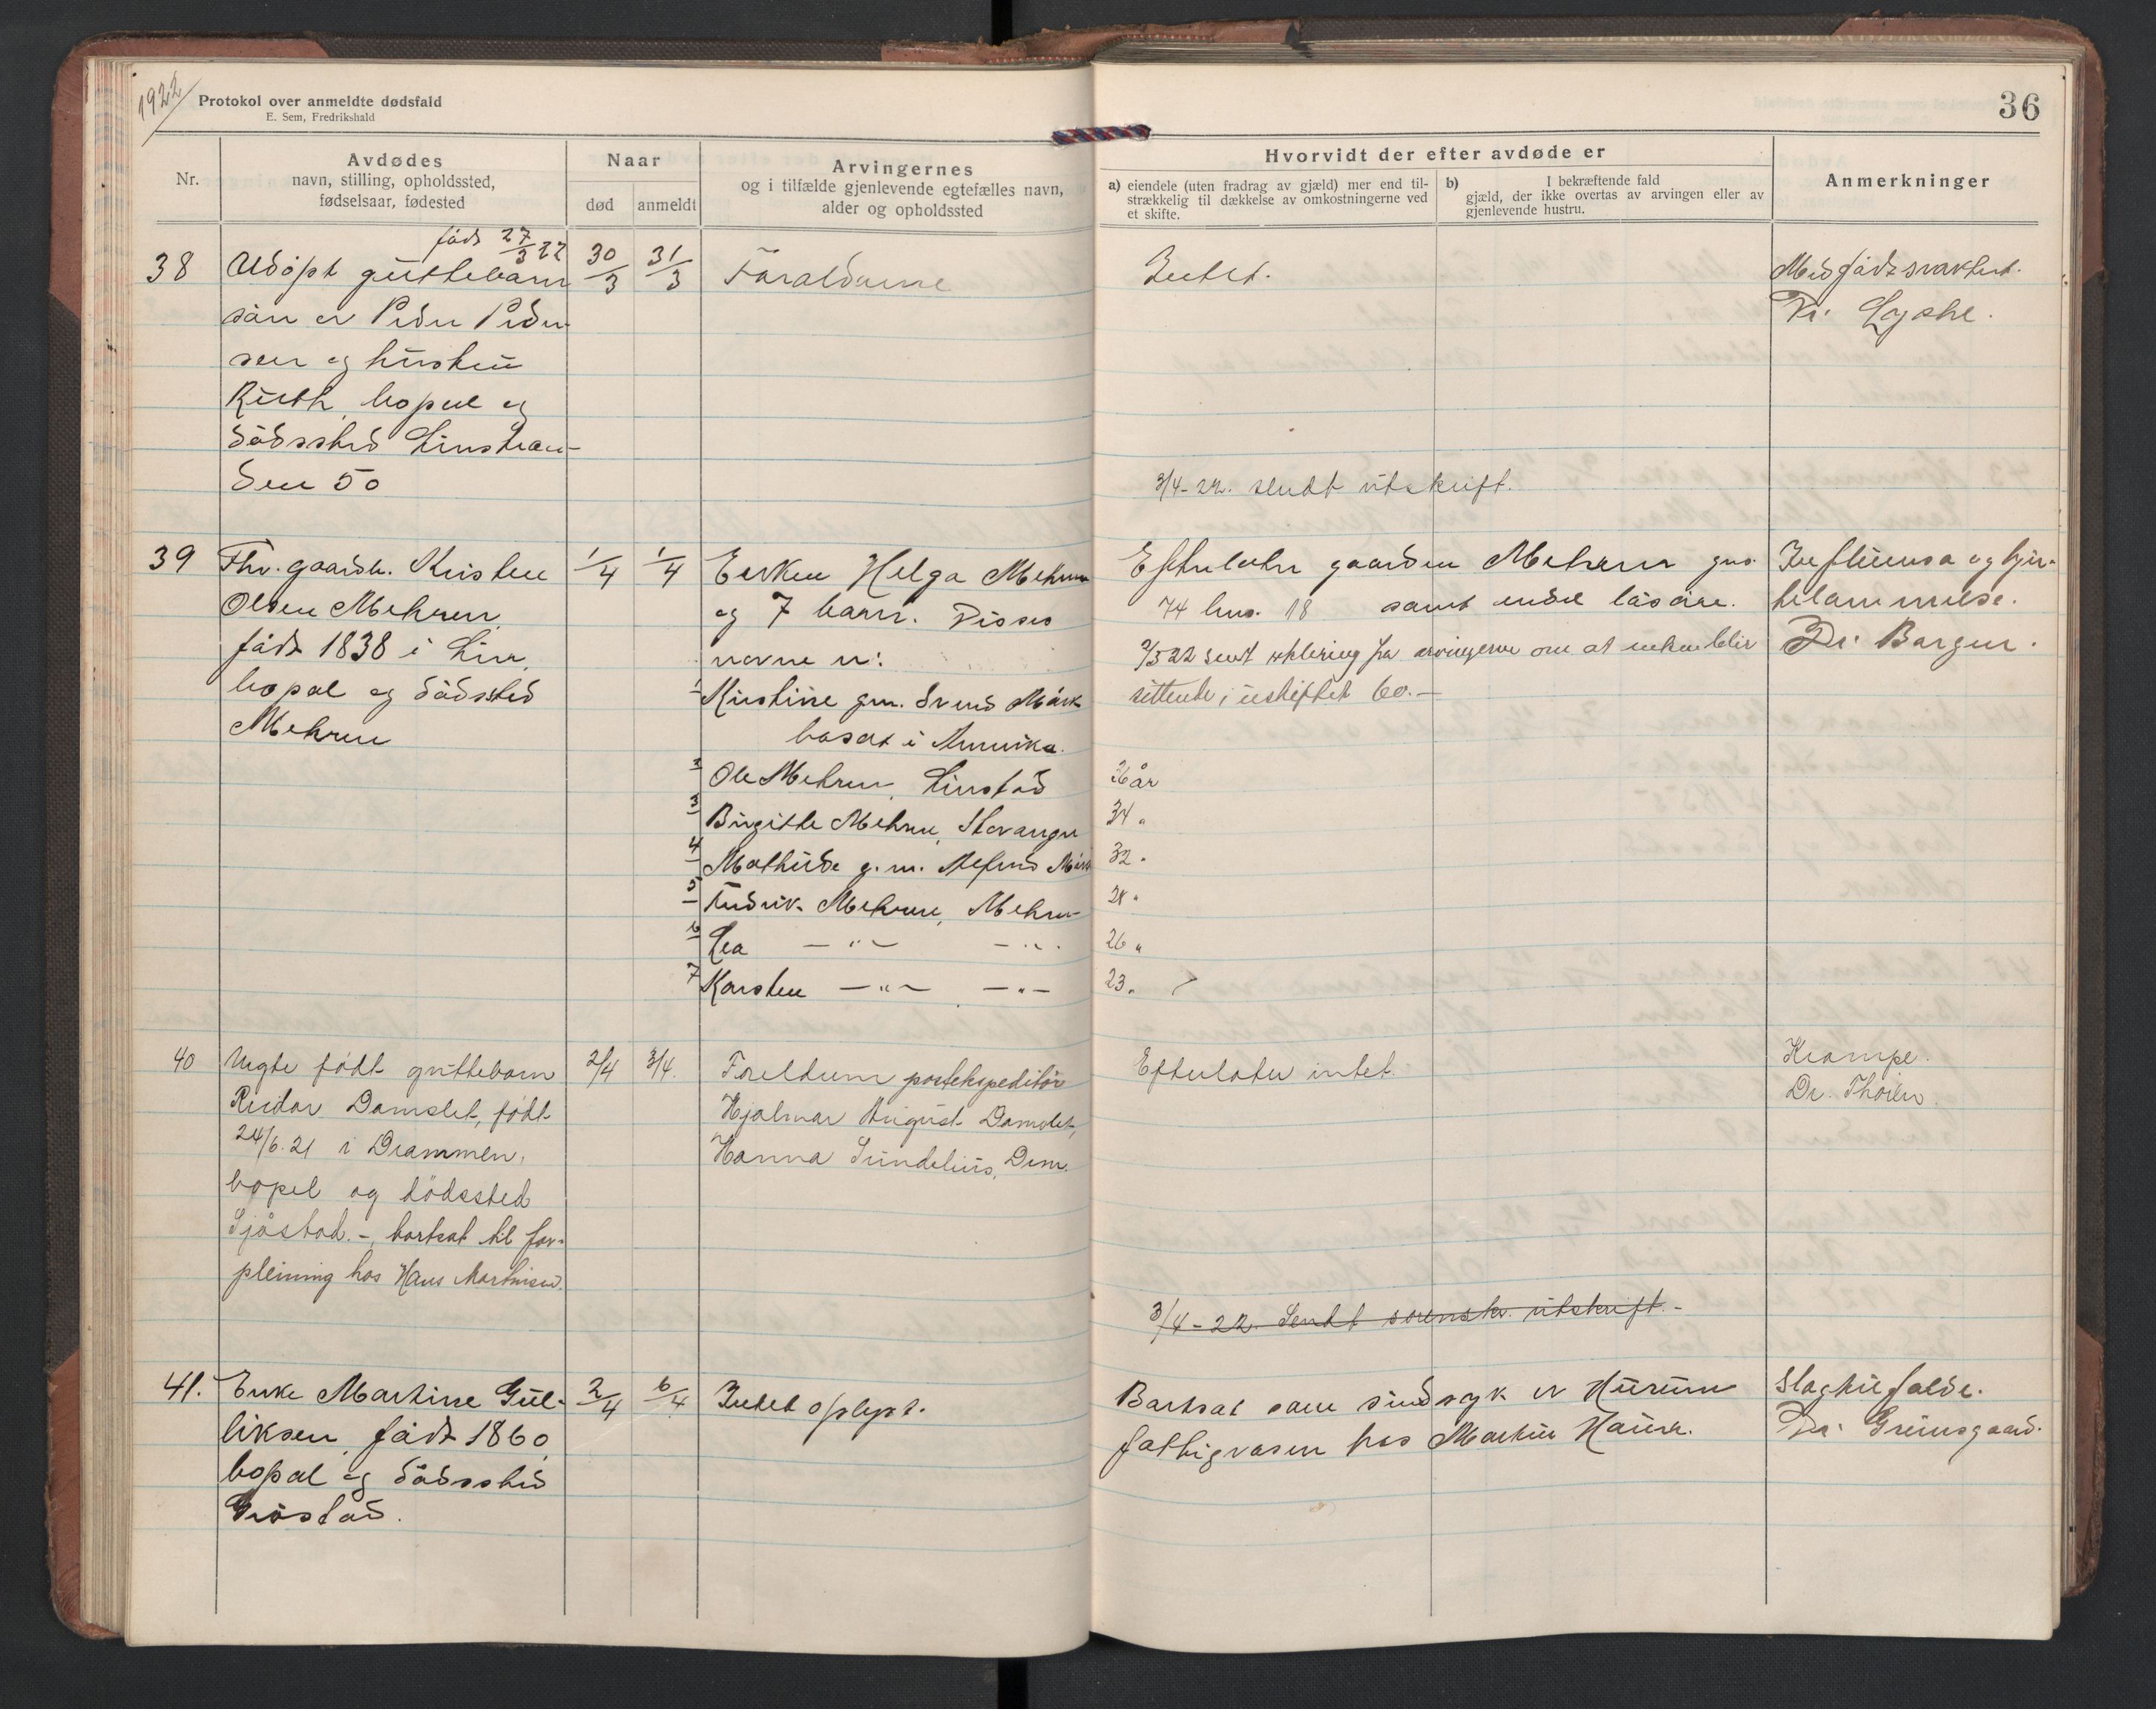 1922
Protokol over anmeldte dødsfald
E. Sem, Fredrikshald
36
Nr.
Avdødes
navn, stilling, opholdssted,
fødselsaar, fødested
Naar
død
anmeldt
Arvingernes
og i tilfælde gjenlevende egtefælles navn,
alder og opholdssted
Hvorvidt der efter avdøde er
a) eiendele (uten fradrag av gjæld) mer end til-
strækkelig til dækkelse av omkostningerne ved
et skifte.
b) I bekræftende fald
gjæld, der ikke overtas av arvingen eller av
gjenlevende hustru.
Anmerkninger
født 27/3 22
38 Udøpt guttebarn
søn av Peder Peder-
sen og hustru
Ruth, bopæl og
dødssted Linstran-
den 50
30/3 31/3
Forældrene
Intet.
3/4-22. sendt utskrift.
Medfødt svakhet.
Dr. Lyche.
39 Fhv. gaardb. Kristen
Olsen Mehren,
født 1838 i Lier,
bopæl og dødssted
Mehren
1/4 1/4
Enken Helga Mehren
og 7 barn. Disses
navne er:
1 Kristine gm. Svend Mørk
bosat i Amerika.
2 Ole Mehren, Linstad 36 år
3 Birgitte Mehren, Stavanger 34 "
4 Mathilde g. m. 32 "
5 Fredrik Mehren, Mehren 28 "
6 Lea — " — — " — 26 "
7 Karsten — " — — " — 23 "
Efterlater gaarden Mehren gno.
74 bno. 18 samt endel løsøre.
2/5 22 sent erklæring fra arvingerne om at enken blir
sittende i uskiftet bo.—
Influensa og hjer-
telammelse.
Dr. Borgen.
40 Uegte født guttebarn
Reidar Damslet, født
24/6.21 i Drammen,
bopel og dödssted
Sjåstad. -, bortsat til for-
pleining hos Hans Martinsen.
2/4 3/4.
Foreldrene postekspeditör
Hjalmar August Damslet,
Hanna Sundelius, Drm.
Efterlater intet.
3/4-22. Sendt sorenskr. utskrift.-
Krampe.
Dr. Thorén.
41. Enke Martine Gul-
liksen, født 1860,
bopæl og dødssted
Grøstad.
2/4 6/4
Intet oplyst.
Bortsat som sindssyk av Hurum
fattigvæsen hos Martin
Slagtilfælde.
Dr. Grimsgaard.